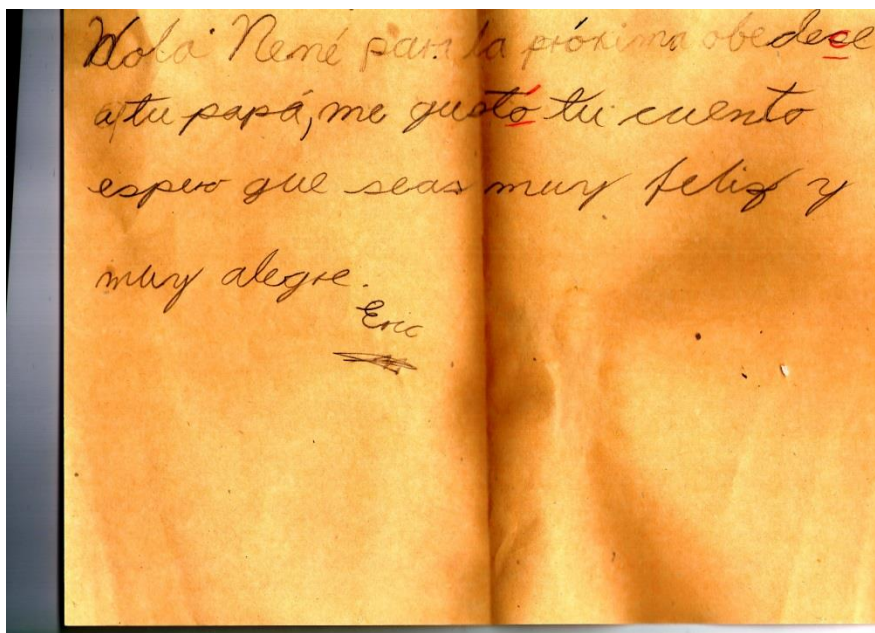 Hola Nené para la próxima obedece
a tu papá, me gustó tu cuento
espero que seas muy feliz y
muy alegre.
Eric